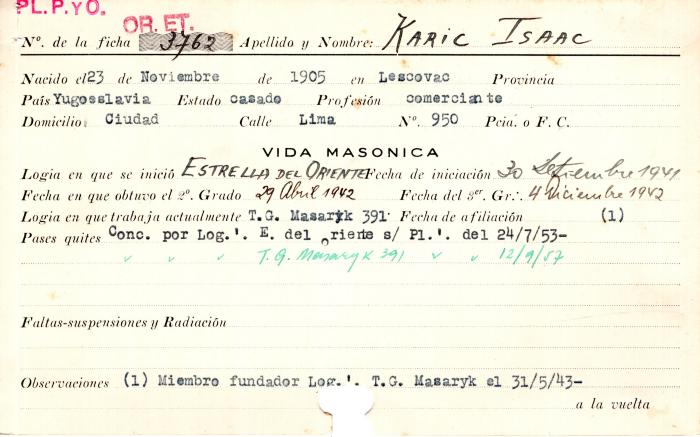 PL. P. y O.
OR. ET.
Nº. de la ficha 3762 Apellido y Nombre: KARIC ISAAC
Nacido el 23 de Noviembre de 1905 en Lescovac Provincia
País Yugosslavia Estado casado Profesión comerciante
Domicilio: Ciudad Calle Lima Nº. 950 Pcia. o F. C.
VIDA MASONICA
Logia en que se inició ESTRELLA DEL ORIENTE Fecha de iniciación 30 Setiembre 1941
Fecha en que obtuvo el 2º. Grado 29 Abril 1942 Fecha del 3er. Gr.: 4 Diciembre 1942
Logia en que trabaja actualmente T.G. Masaryk 391· Fecha de afiliación (1)
Pases quites Conc. por Log.'. E. del Oriente s/ Pl.'. del 24/7/53-
" " " T. G. Masaryk 391 " " 12/9/57
Faltas-suspensiones y Radiación
Observaciones (1) Miembro fundador Log.'. T.G. Masaryk el 31/5/43-
a la vuelta